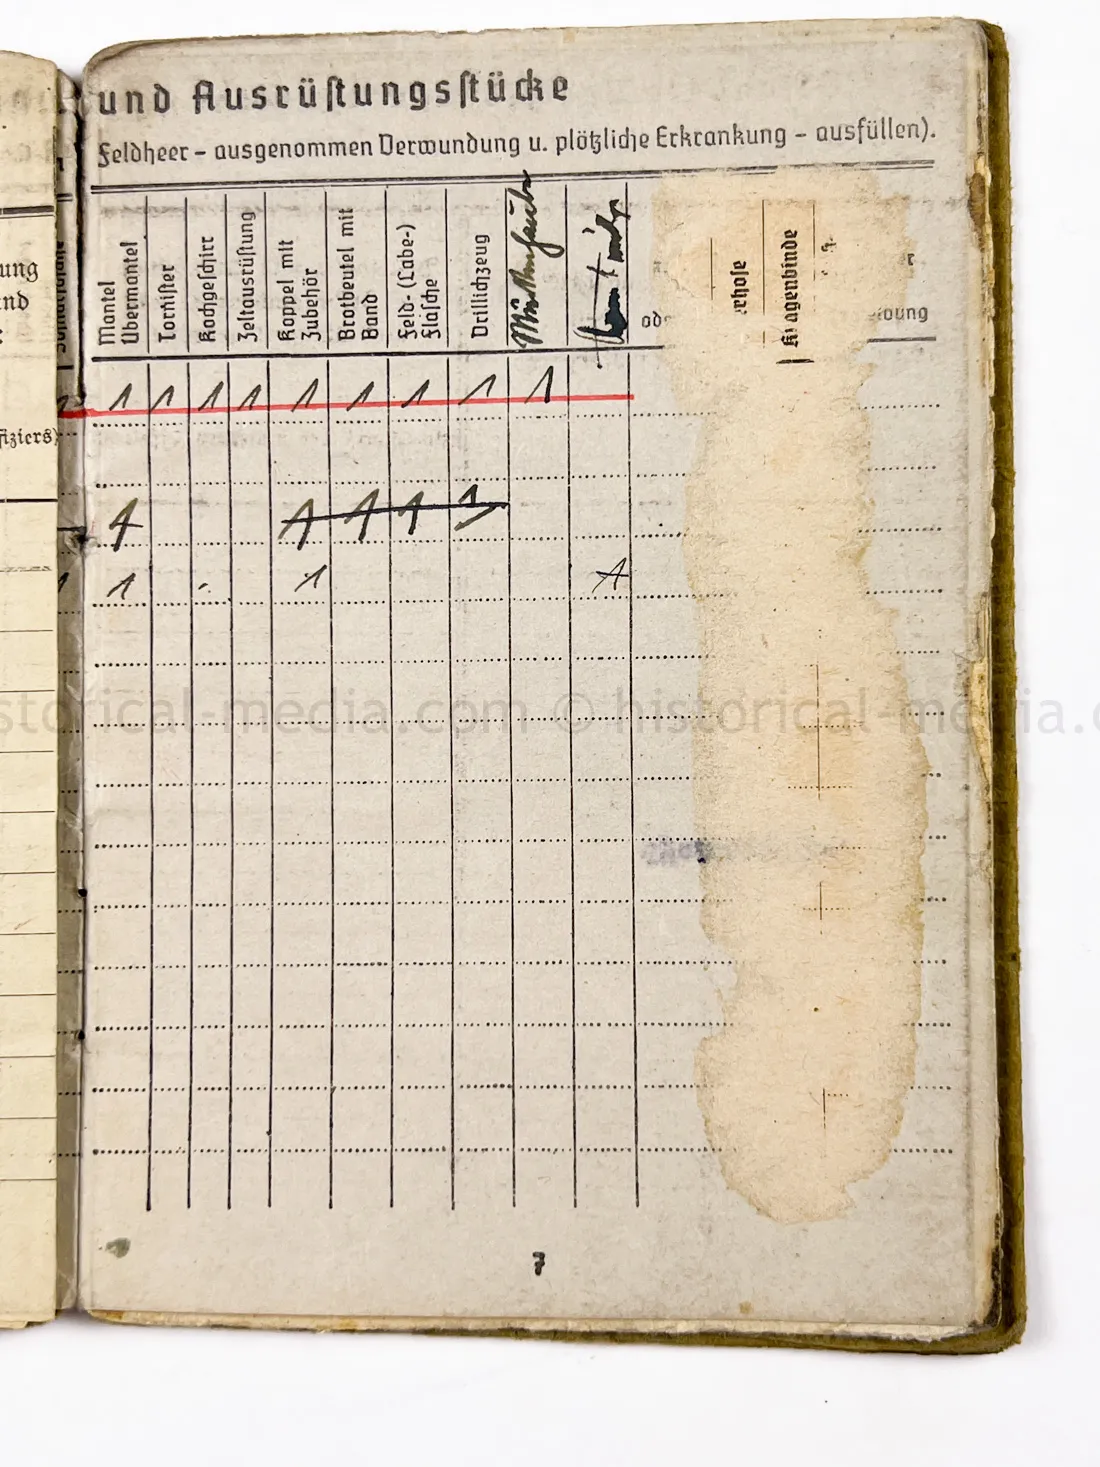 und Ausrüstungsstücke
Feldheer – ausgenommen Verwundung u. plötzliche Erkrankung – ausfüllen).
ung
nd
fiziers)
Mantel
Übermantel
Tornister
Kochgeschirr
Zeltausrüstung
Koppel mit
Zubehör
Brotbeutel mit
Band
Feld- (Labe-)
flasche
Drillichzeug
erhose
Kragenbinde
1 1 1 1 1 1 1 1 1
1 1 1 1 1
1 1 1
historical-media.com © historical-media.c
7